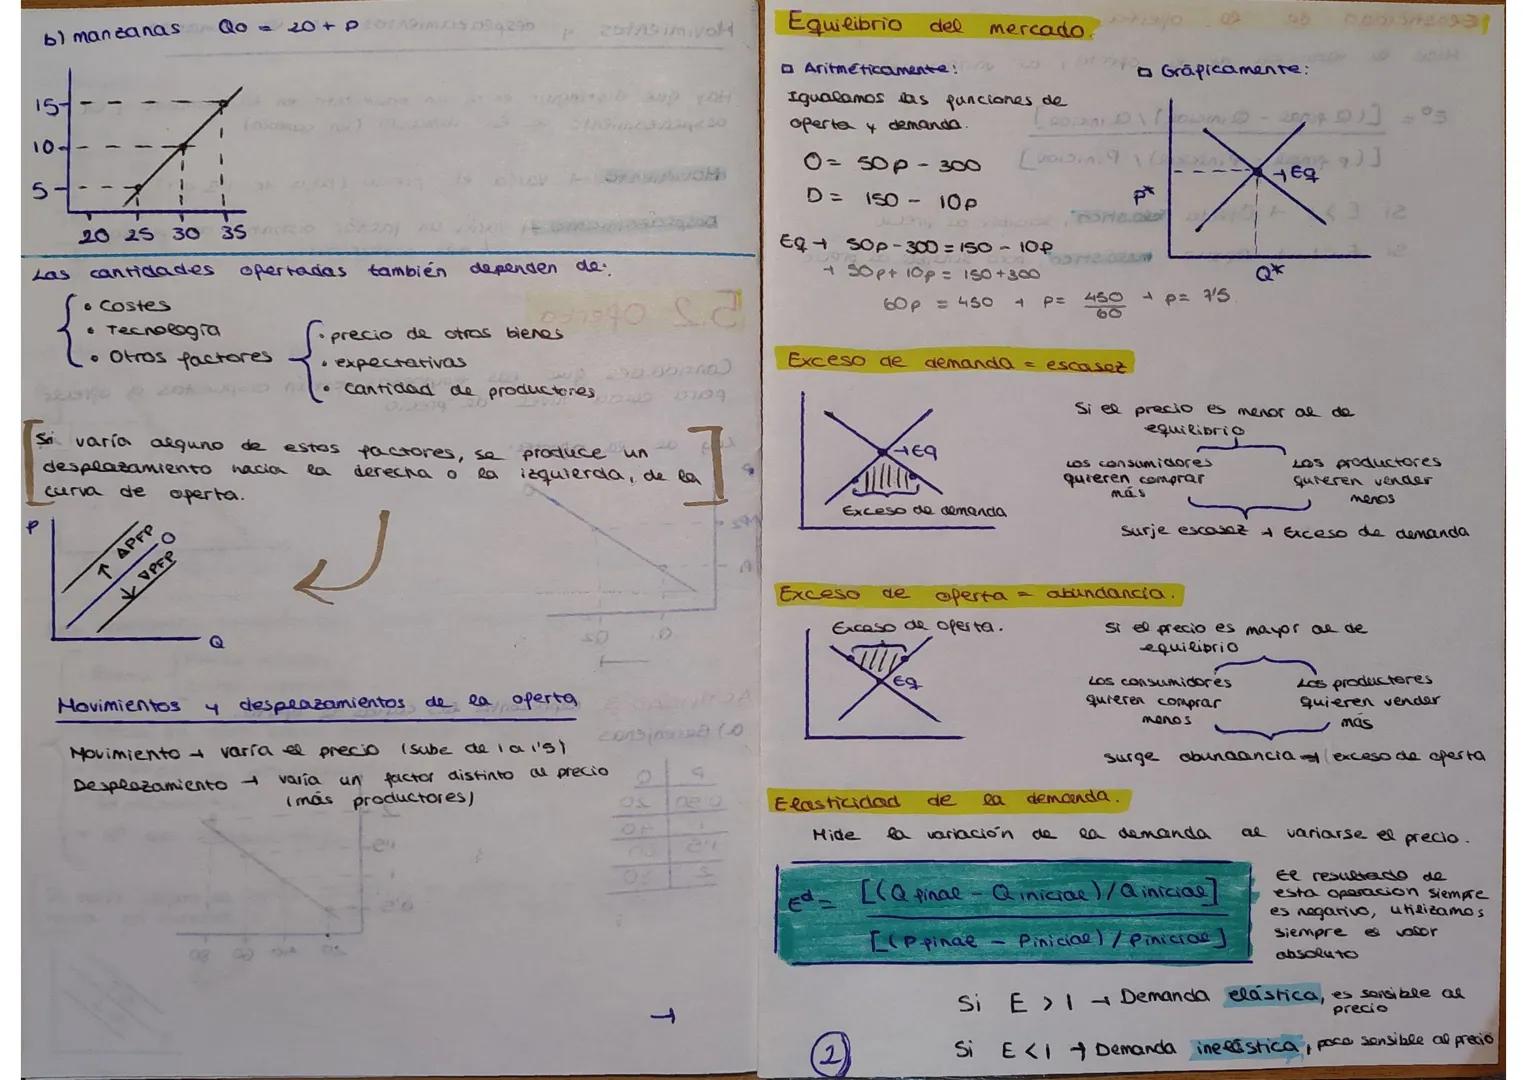 b) manzanas Qo = 20 + P
15
10
5
20 25 30 35
Las cantidades ofertadas también dependen de:
• Costes
• Tecnología
• Otros factores
• precio de otros bienes
• expectativas
• Cantidad de productores
Si varía alguno de estos factores, se produce un
desplazamiento hacia la derecha o la izquierda, de la
curva de oferta.
P
↑ ΔPFP
O
↓ ∇PFP
Q
Movimientos y desplazamientos de la oferta
Movimiento → varía el precio (sube de 1 a 1'5)
Desplazamiento → varía un factor distinto al precio
(más productores)
→
Equilibrio del mercado.
Aritméticamente:
Igualamos las funciones de
oferta y demanda.
O = 50p - 300
D = 150 - 10p
Eq → 50p - 300 = 150 - 10p
→ 50p + 10p = 150 + 300
60p = 450 → p = 450/60 → p = 7'5
Gráficamente:
P*
→ Eq
Q*
Exceso de demanda = escasez
→ Eq
Exceso de demanda
Si el precio es menor al de
equilibrio
Los consumidores
quieren comprar
más
Los productores
quieren vender
menos
Surje escasez → Exceso de demanda
Exceso de oferta = abundancia.
Exceso de oferta.
Eq
Si el precio es mayor al de
equilibrio
Los consumidores
quieren comprar
menos
Los productores
quieren vender
más
surge abundancia → exceso de oferta
Elasticidad de la demanda.
Mide la variación de la demanda al variarse el precio.
Ed = [(Q final - Q inicial) / Q inicial]
[(P final - P inicial) / P inicial]
El resultado de
esta operación siempre
es negativo, utilizamos
siempre el valor
absoluto
Si E > 1 → Demanda elástica, es sensible al
precio
Si E < 1 → Demanda inelástica, poco sensible al precio
2